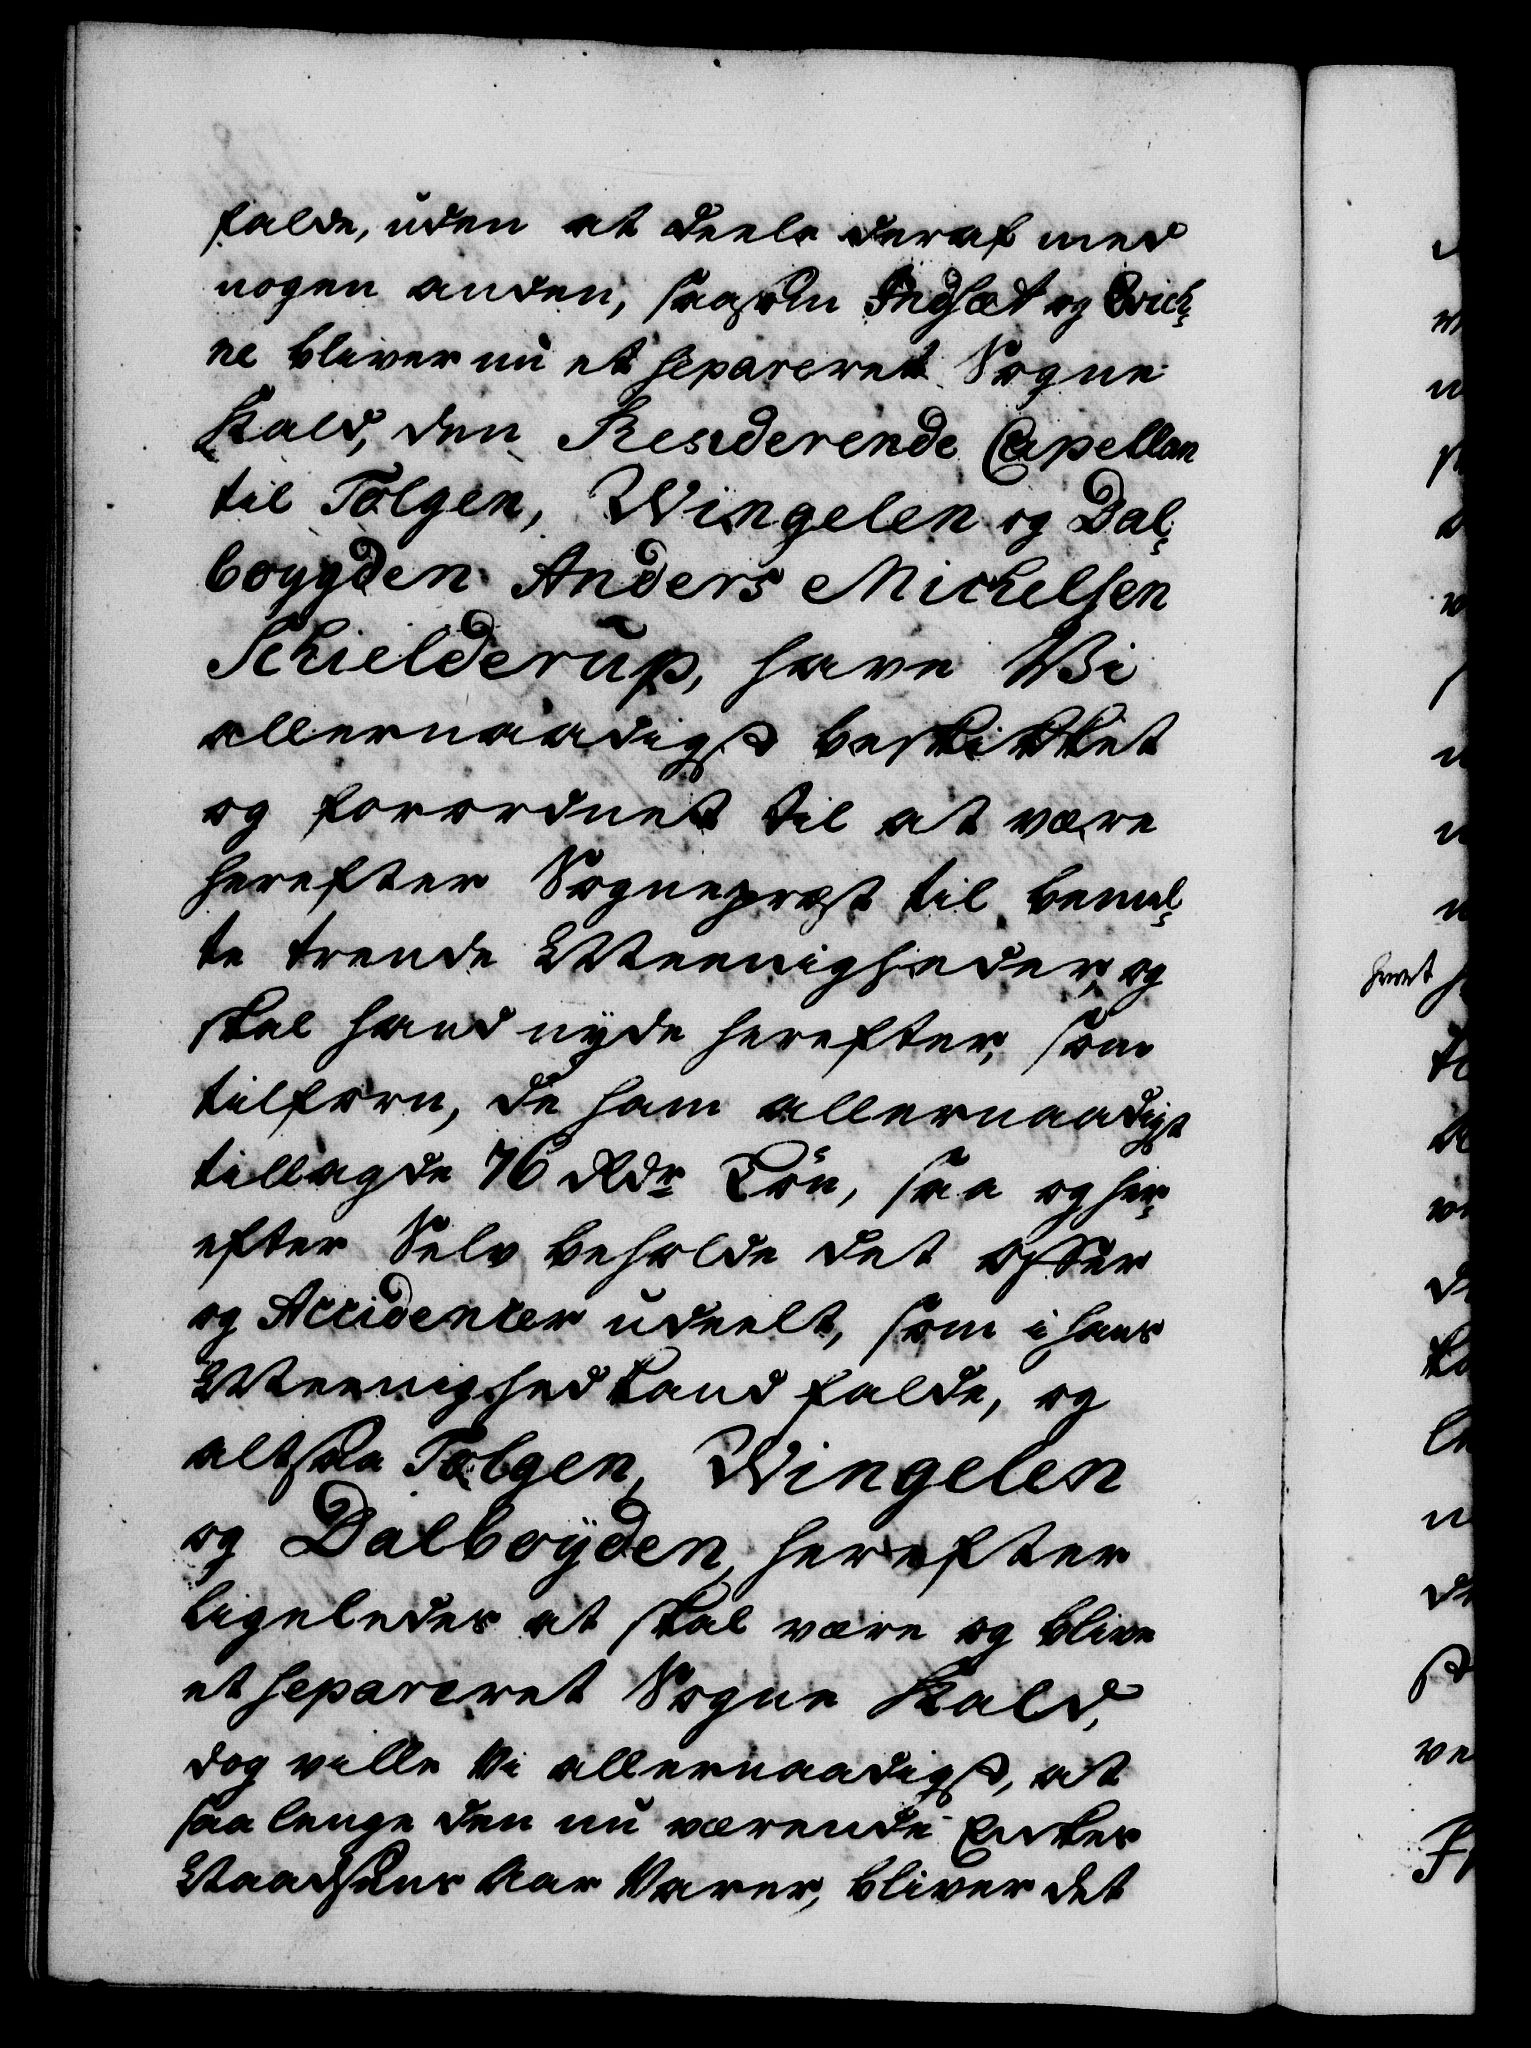 falde, uden at deele deraf med
nogen anden, saasom Indset og Brich¬
ne bliver nu et separeret Sogne
Kald, den Residerende Capellan
til Tolgen, Wingelen og Dal¬
boygden Anders Michelsen
Schielderup, have Vi
allernaadigst beskikket
og forordnet til at være
herefter Sognepræst til bemel¬
te trende Meenigheder, og
skal hand nyde herefter, som
tilforn, de ham allernaadigst
tillagde 76 Rdr Lön, saa og her¬
efter Selv beholde det offer
og Accidencer udeelt, som i hans
Meenighed kand falde, og
altsaa Tolgen, Wingelen
og Dalboyden, herefter
ligeledes at skal være og blive
et separeret Sogne Kald,
dog ville Vi allernaadigst, at
saa lenge den nu værende Enkes
Naadsens Aar Varer, bliver det